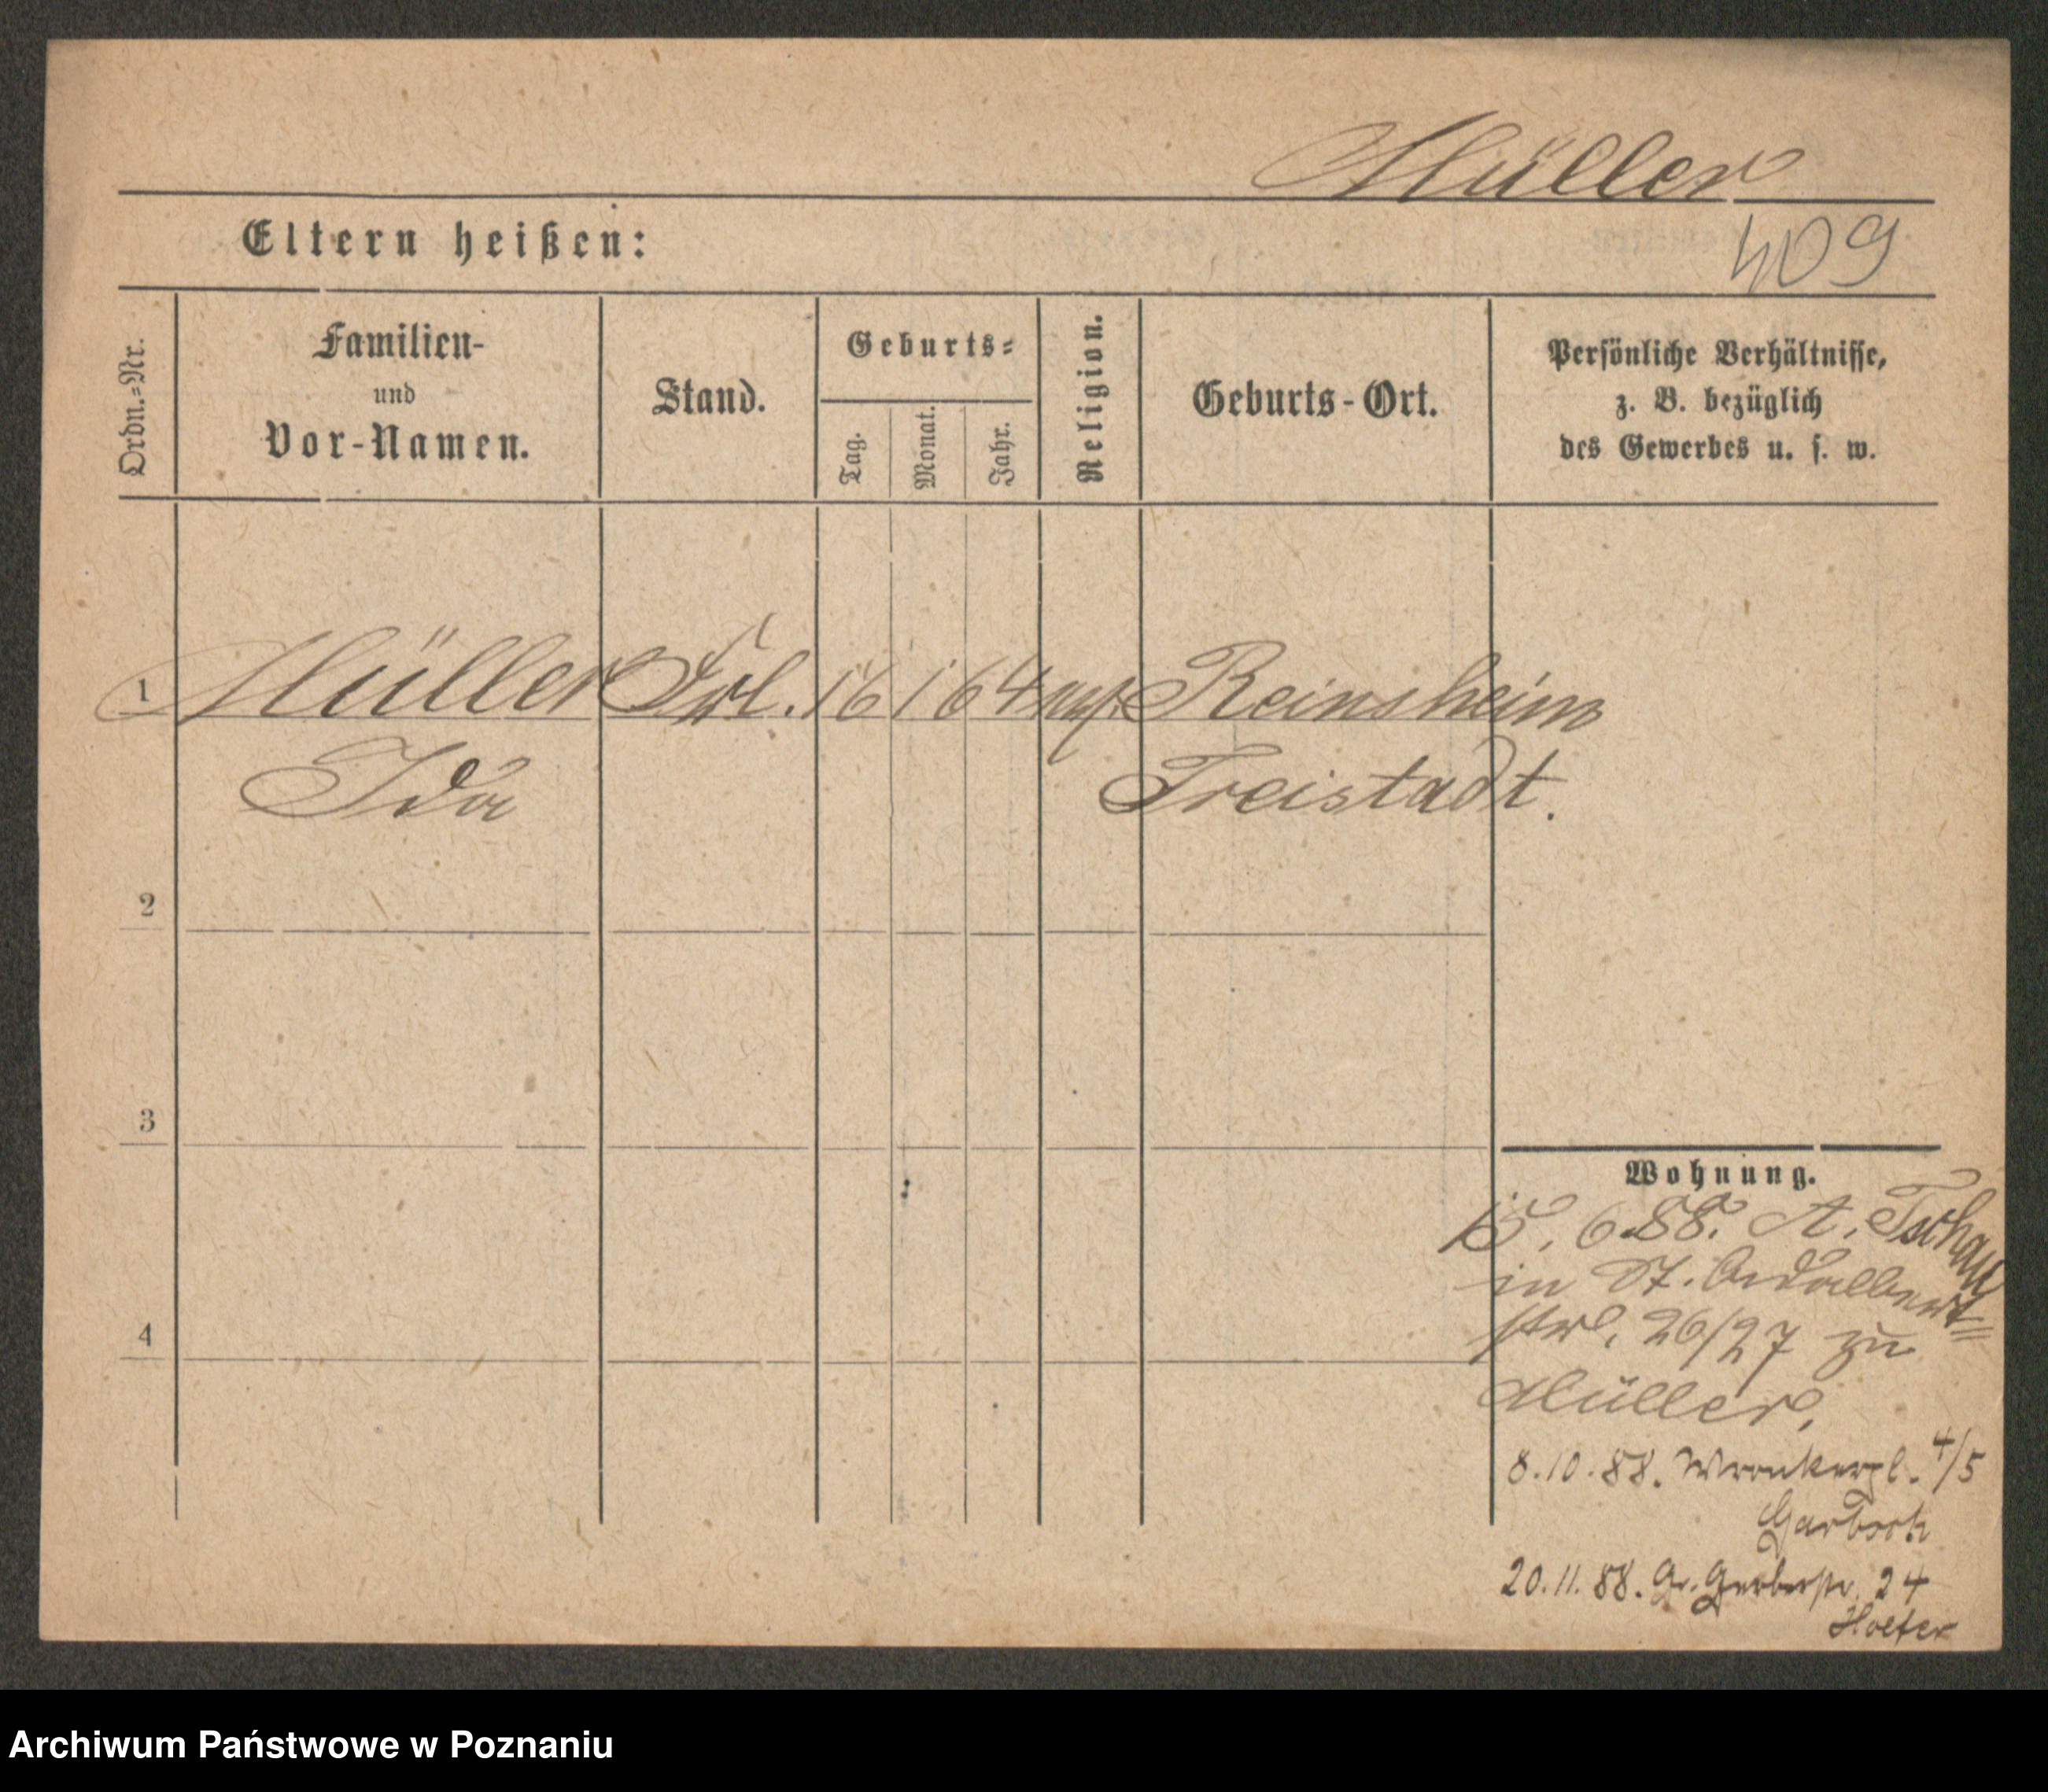 Müller
Eltern heißen:
409
Ordn.=Nr.
Familien-
und
Vor-Namen.
Stand.
Geburts=
Tag.
Monat.
Jahr.
Religion.
Geburts-Ort.
Persönliche Verhältnisse,
z. B. bezüglich
des Gewerbes u. s. w.
1 Müller Frl. 16 1 64 Reinsheim
Ida Freistadt.
2
3
4
Wohnung.
15. 6. 88. A. Tschau
in St. Adalbert=
str. 26/27 zu
Müller.
8.10.88. Wronkerpl. 4/5
20.11.88. Gr. Gerberstr. 24
Archiwum Państwowe w Poznaniu